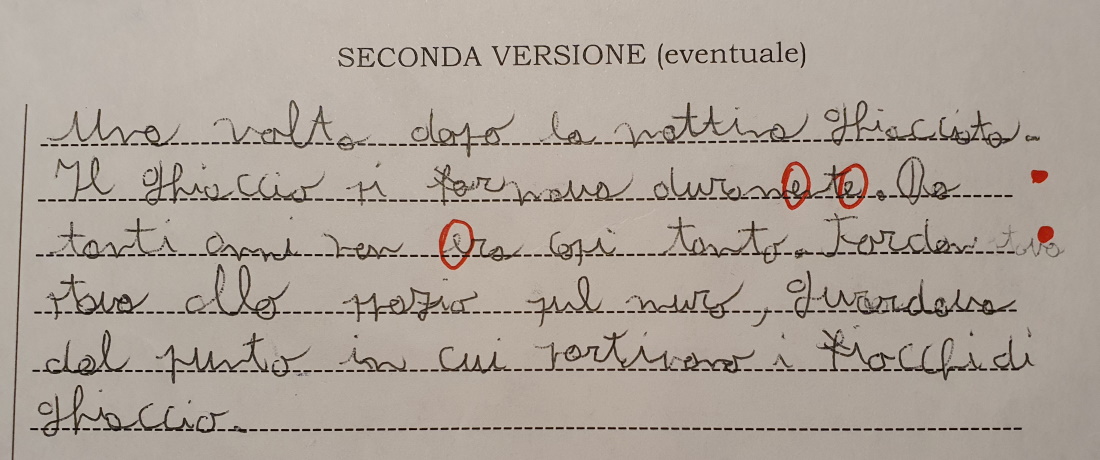 SECONDA VERSIONE (eventuale)
Una volta dopo la nottina ghiacciata.
Il ghiaccio si formava durante. Da
tanti anni non era così tanto. Jorden
stava allo spazio sul muro, guardava
dal punto in cui partivano i fiocchi di
ghiaccio.